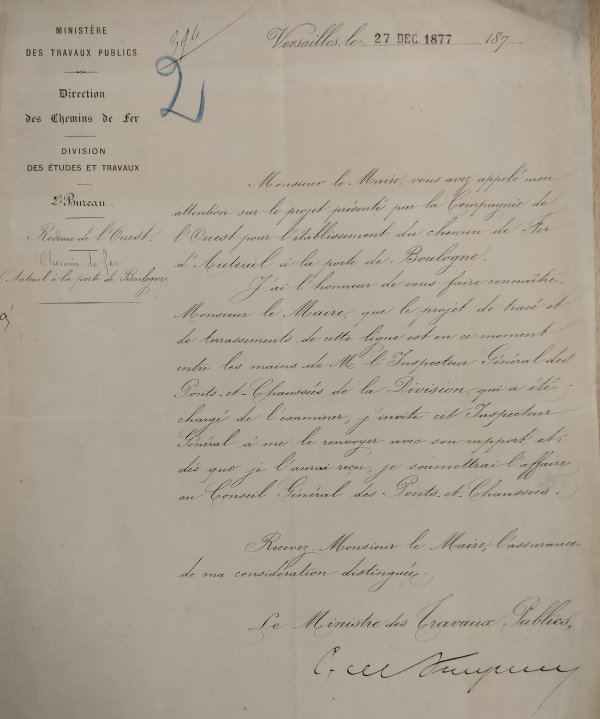 MINISTÈRE
DES TRAVAUX PUBLICS
Direction
des Chemins de Fer
DIVISION
DES ÉTUDES ET TRAVAUX
2e Bureau.
Réseau de l'Ouest.
Chemin de fer
d'Auteuil à la porte de Boulogne.
2
Versailles, le 27 DEC. 1877 187
Monsieur le Maire, vous avez appelé mon
attention sur le projet présenté par la Compagnie de
l'Ouest pour l'établissement du chemin de Fer
d'Auteuil à la porte de Boulogne.
J'ai l'honneur de vous faire connaître,
Monsieur le Maire, que le projet de tracé et
de terrassements de cette ligne est en ce moment
entre les mains de M. l'Inspecteur Général des
Ponts-et-Chaussées de la Division, qui a été
chargé de l'examiner, j'invite cet Inspecteur
Général à me le renvoyer avec son rapport et,
dès que je l'aurai reçu, je soumettrai l'affaire
au Conseil Général des Ponts-et-Chaussées.
Recevez, Monsieur le Maire, l'assurance
de ma considération distinguée.
Le Ministre des Travaux Publics,